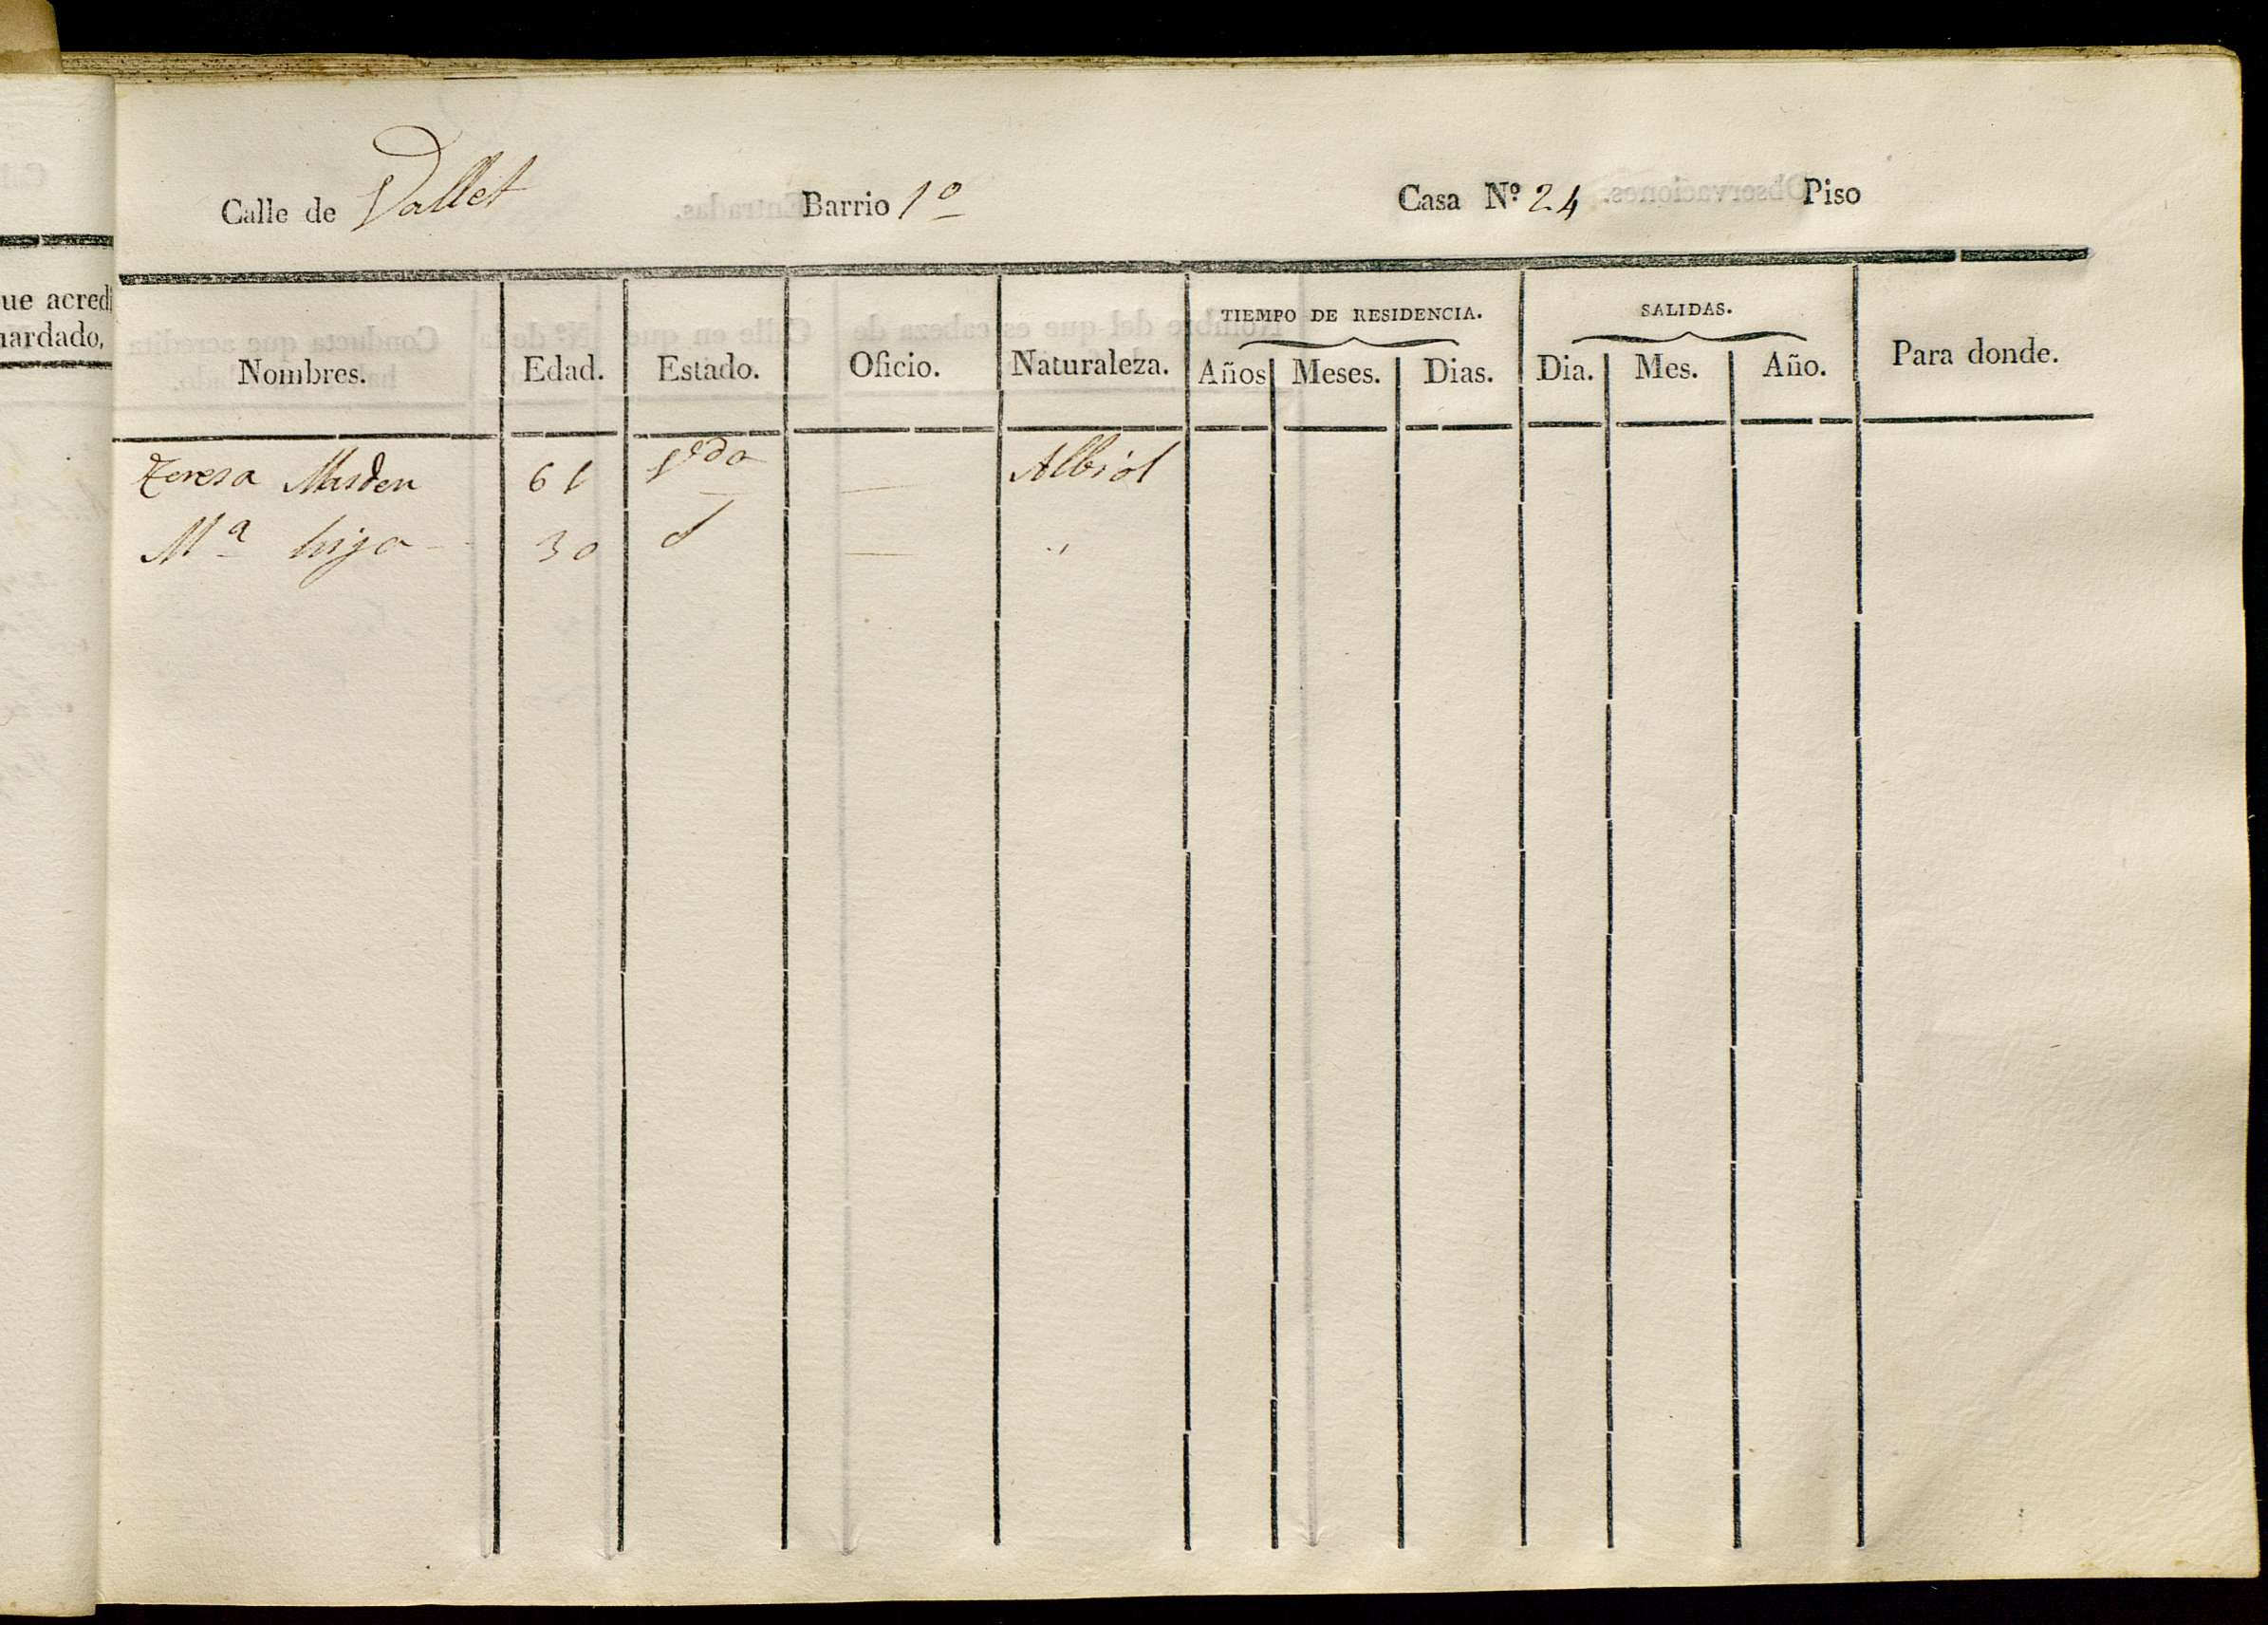 Calle de Vallet Barrio 1º Casa Nº 24 Piso
ue acredi
ardado,
TIEMPO DE RESIDENCIA. SALIDAS.
Nombres. Edad. Estado. Oficio. Naturaleza. Años Meses. Dias. Dia. Mes. Año. Para donde.
Teresa Masden 61 Vda — Albiol
Mª hija 30 — "